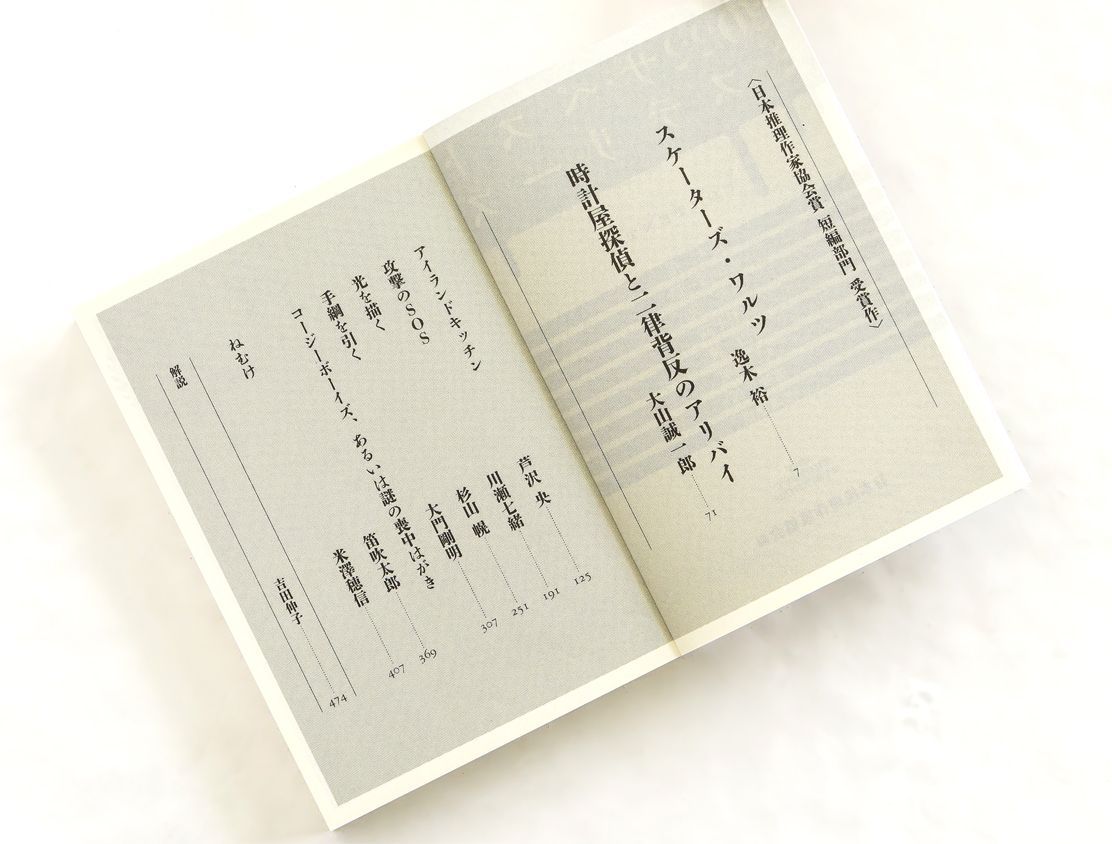 〈日本推理作家協会賞 短編部門 受賞作〉
スケーターズ・ワルツ 逸木 裕 7
時計屋探偵と二律背反のアリバイ 大山誠一郎 71
アイランドキッチン 芦沢 央 125
攻撃のSOS 川瀬七緒 191
光を描く 杉山 幌 251
手綱を引く 大門剛明 307
コージーボーイズ、あるいは謎の喪中はがき 笛吹太郎 369
ねむけ 米澤穂信 407
解説 吉田伸子 474